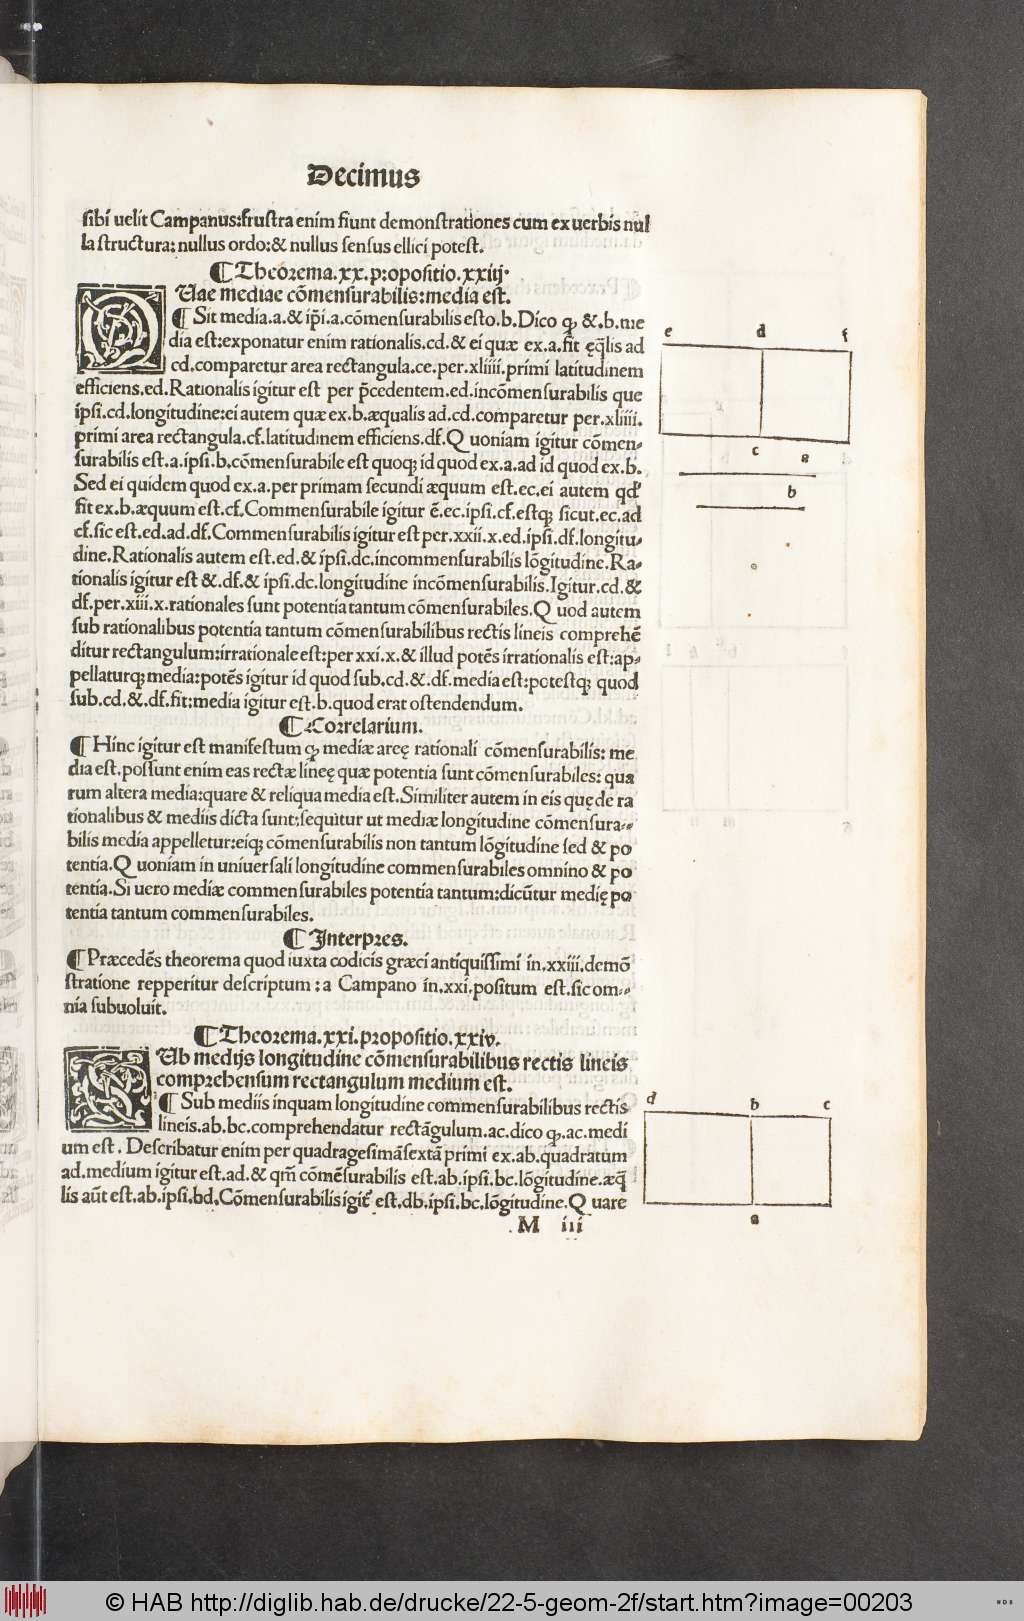 Decimus
sibi uelit Campanus:frustra enim fiunt demonstrationes cum ex uerbis nul
la structura:nullus ordo:& nullus sensus ellici potest.
¶Theorema.xx.propositio.xxiij.
QUae mediae cōmensurabilis:media est.
¶Sit media.a.& ip̄i.a.cōmensurabilis esto.b.Dico ꝙ &.b.me
dia est:exponatur enim rationalis.cd.& ei quæ ex.a.fit ęq̄lis ad
cd.comparetur area rectangula.ce.per.xliiii.primi latitudinem
efficiens.ed.Rationalis igitur est per p̄cedentem.ed.incōmensurabilis que
ipsi.cd.longitudine:ei autem quæ ex.b.æqualis ad.cd.comparetur per.xliiii.
primi area rectangula.cf.latitudinem efficiens.df.Quoniam igitur cōmen-
surabilis est.a.ipsi.b.cōmensurabile est quoqꝫ id quod ex.a.ad id quod ex.b.
Sed ei quidem quod ex.a.per primam secundi æquum est.ec.ei autem qd̓
fit ex.b.æquum est.cf.Commensurabile igitur ē.ec.ipsi.cf.estqꝫ sicut.ec.ad
cf.sic est.ed.ad.df.Commensurabilis igitur est per.xxii.x.ed.ipsi.df.longitu-
dine.Rationalis autem est.ed.& ipsi.dc.incommensurabilis lōgitudine.Ra-
tionalis igitur est &.df.& ipsi.dc.longitudine incōmensurabilis.Igitur.cd.&
df.per.xiii.x.rationales sunt potentia tantum cōmensurabiles.Quod autem
sub rationalibus potentia tantum cōmensurabilibus rectis lineis comprehē
ditur rectangulum:irrationale est:per xxi.x.& illud potēs irrationalis est:ap-
pellaturqꝫ media:potēs igitur id quod sub.cd.&.df.media est:potestqꝫ quod
sub.cd.&.df.fit:media igitur est.b.quod erat ostendendum.
¶Correlarium.
¶Hinc igitur est manifestum ꝙ mediæ areę rationali cōmensurabilis: me
dia est.possunt enim eas rectæ lineę quæ potentia sunt cōmensurabiles: qua
rum altera media:quare & reliqua media est.Similiter autem in eis quę de ra
tionalibus & mediis dicta sunt:sequitur ut mediæ longitudine cōmensura-
bilis media appelletur:eiqꝫ cōmensurabilis non tantum lōgitudine sed & po
tentia.Quoniam in uniuersali longitudine commensurabiles omnino & po
tentia.Si uero mediæ commensurabiles potentia tantum:dicūtur medię po
tentia tantum commensurabiles.
¶Interpres.
¶Præcedēs theorema quod iuxta codicis græci antiquissimi in.xxiii.demō
stratione repperitur descriptum : a Campano in.xxi.positum est.sic om-
nia subuoluit.
¶Theorema.xxi.propositio.xxiv.
SUb medijs longitudine cōmensurabilibus rectis lineis
comprehensum rectangulum medium est.
¶Sub mediis inquam longitudine commensurabilibus rectis
lineis.ab.bc.comprehendatur rectāgulum.ac.dico ꝙ.ac.medi
um est. Describatur enim per quadragesimāsextā primi ex.ab.quadratum
ad.medium igitur est.ad.& qm̄ cōmēsurabilis est.ab.ipsi.bc.lōgitudine.æq̄
lis aūt est.ab.ipsi.bd.Cōmensurabilis igit̃ est.db.ipsi.bc.lōgitudine.Quare
M iii
e d f
c
a
b
d b c
a
© HAB http://diglib.hab.de/drucke/22-5-geom-2f/start.htm?image=00203